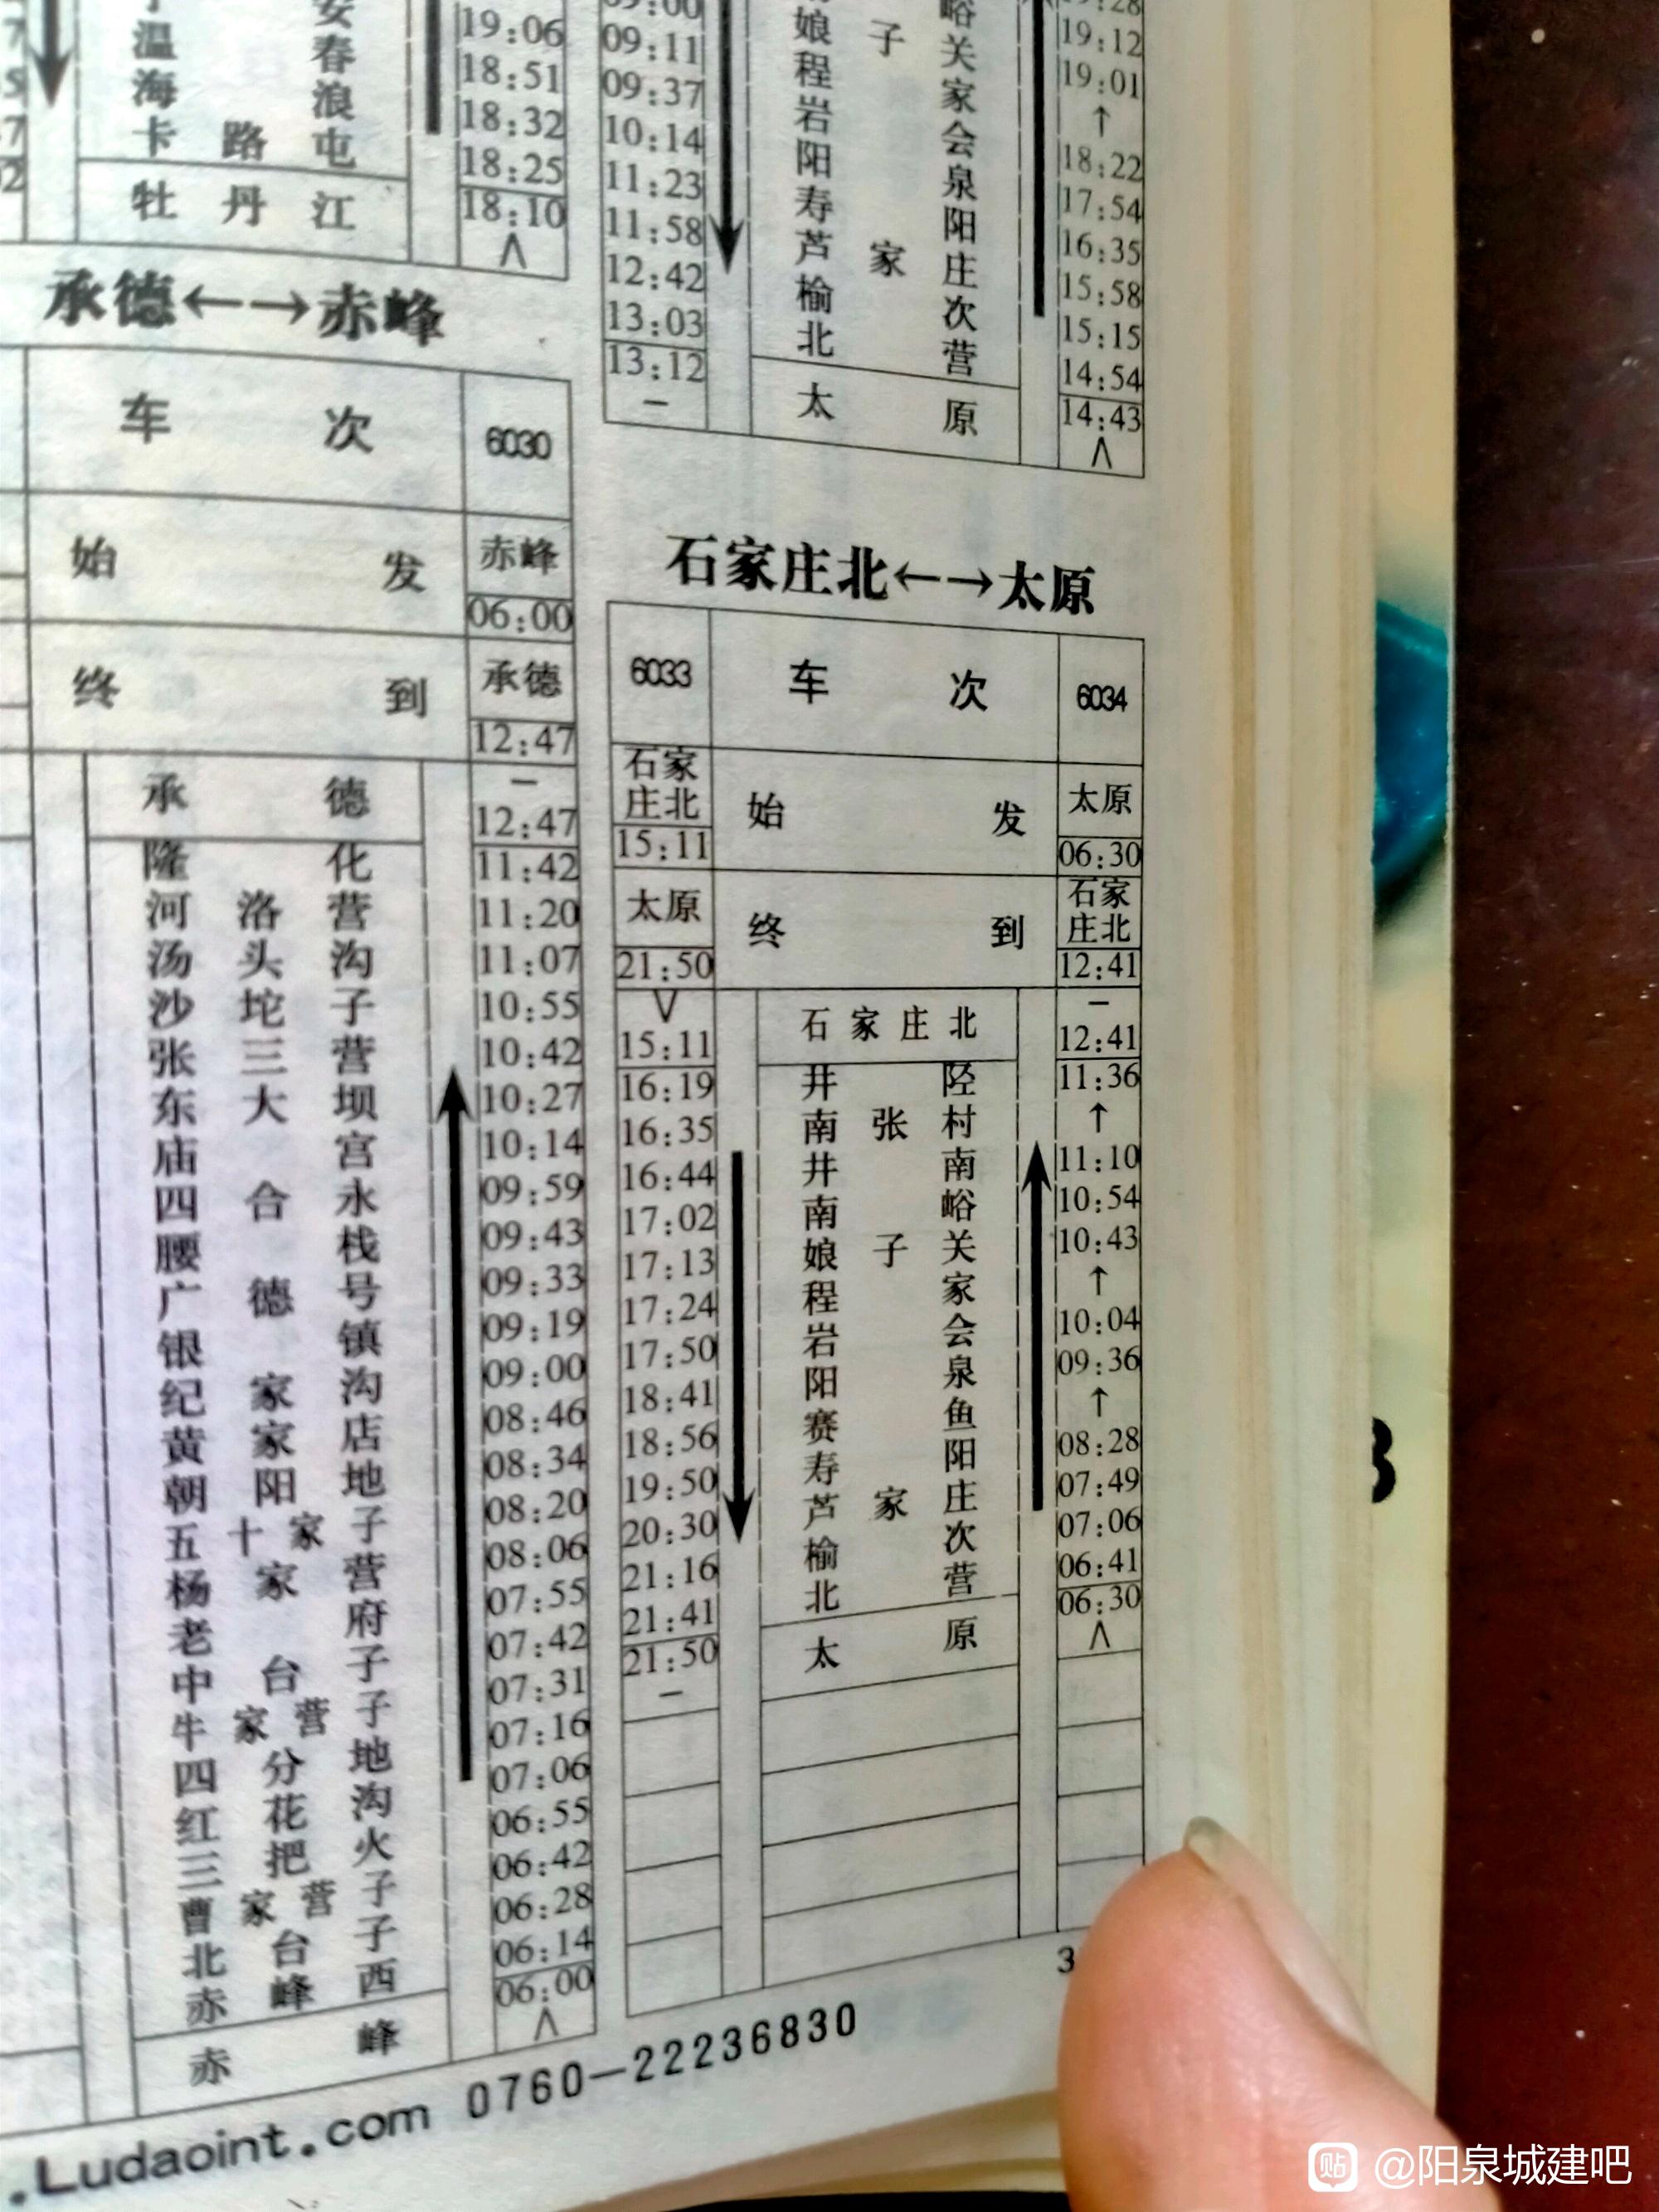 安
19:06
温 春
18:51
海 浪
18:32
卡 路 屯
18:25
牡 丹 江
18:10
∧
承德←→赤峰
车 次 6030
始 发 赤峰
06:00
终 到 承德
12:47
承 德 –
12:47
隆 化 11:42
河 洛 营 11:20
汤 头 沟 11:07
沙 坨 子 10:55
张 三 营 10:42
东 大 坝 10:27
庙 宫 10:14
四 合 永 09:59
腰 栈 09:43
广 德 号 09:33
银 镇 09:19
纪 家 沟 09:00
黄 家 店 08:46
朝 阳 地 08:34
五 十 家 子 08:20
杨 家 营 08:06
老 府 07:55
中 台 子 07:42
牛 家 营 子 07:31
四 分 地 07:16
红 花 沟 07:06
三 把 火 06:55
曹 家 营 子 06:42
北 台 子 06:28
赤 峰 西 06:14
赤 峰 06:00
∧
09:11 娘 子 关 19:12
09:37 程 家 19:01
10:14 岩 会 ↑
11:23 阳 泉 18:22
11:58 寿 阳 17:54
12:42 芦 家 庄 16:35
13:03 榆 次 15:58
13:12 北 营 15:15
– 太 原 14:54
14:43
∧
石家庄北←→太原
6033 车 次 6034
石家庄北 始 发 太原
15:11 06:30
太原 终 到 石家庄北
21:50 12:41
∨ –
15:11 石 家 庄 北 12:41
16:19 井 陉 11:36
16:35 南 张 村 ↑
16:44 井 南 11:10
17:02 南 峪 10:54
17:13 娘 子 关 10:43
17:24 程 家 ↑
17:50 岩 会 10:04
18:41 阳 泉 09:36
18:56 赛 鱼 ↑
19:50 寿 阳 08:28
20:30 芦 家 庄 07:49
21:16 榆 次 07:06
21:41 北 营 06:41
21:50 太 原 06:30
– ∧
3
.Ludaoint.com 0760-22236830
贴 @阳泉城建吧